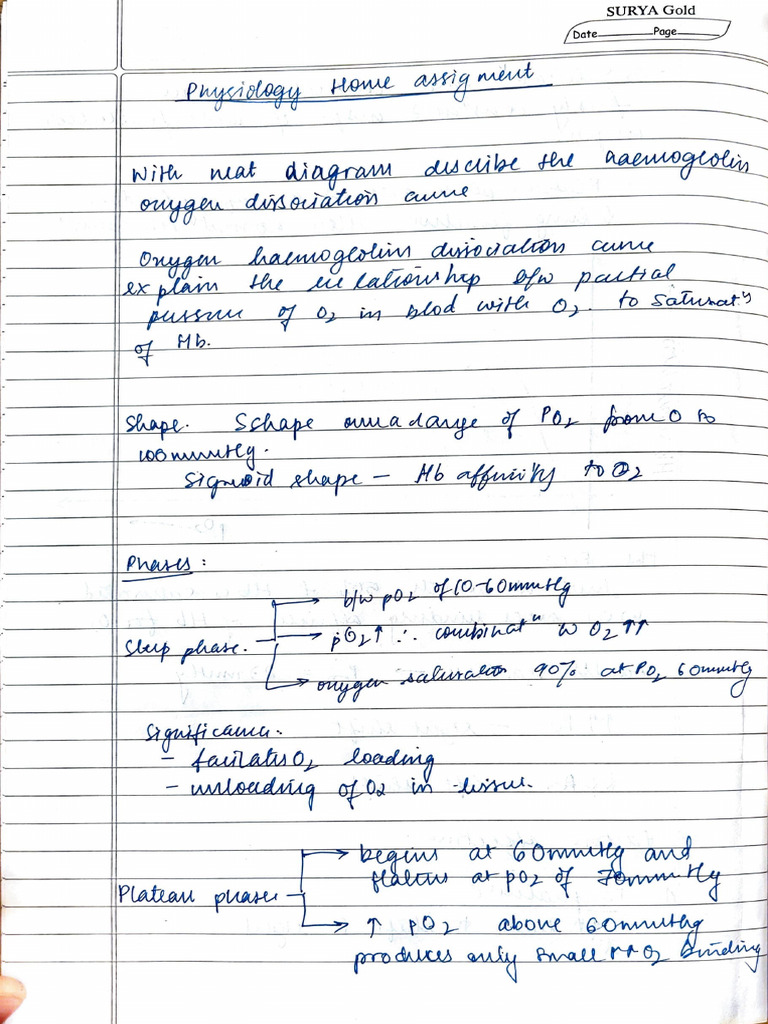 SURYA Gold
Date______Page______
Physiology Home assigment
With neat diagram describe the haemogeolin
oxygen dissociation curve
Oxygen haemogeolins dissociation curve
explain the relationship b/w partial
pressure of O2 in blod with O2. to Saturatn
of Hb.
Shape. S shape over a range of PO2 from 0 to
100mmHg.
Sigmoid shape - Hb affinity to O2
Phases :
b/w pO2 of 10-60mmHg
Steep phase. pO2↑ ∴ combinatn w O2↑↑
oxygen saturation 90% at PO2 60mmHg
Significance.
- faciliates O2 loading
- unloading of O2 in tissue.
begins at 60mmHg and
Plateau phase flattens at pO2 of 70mmHg
↑ pO2 above 60mmHg
produces only small ↑↑ O2 binding